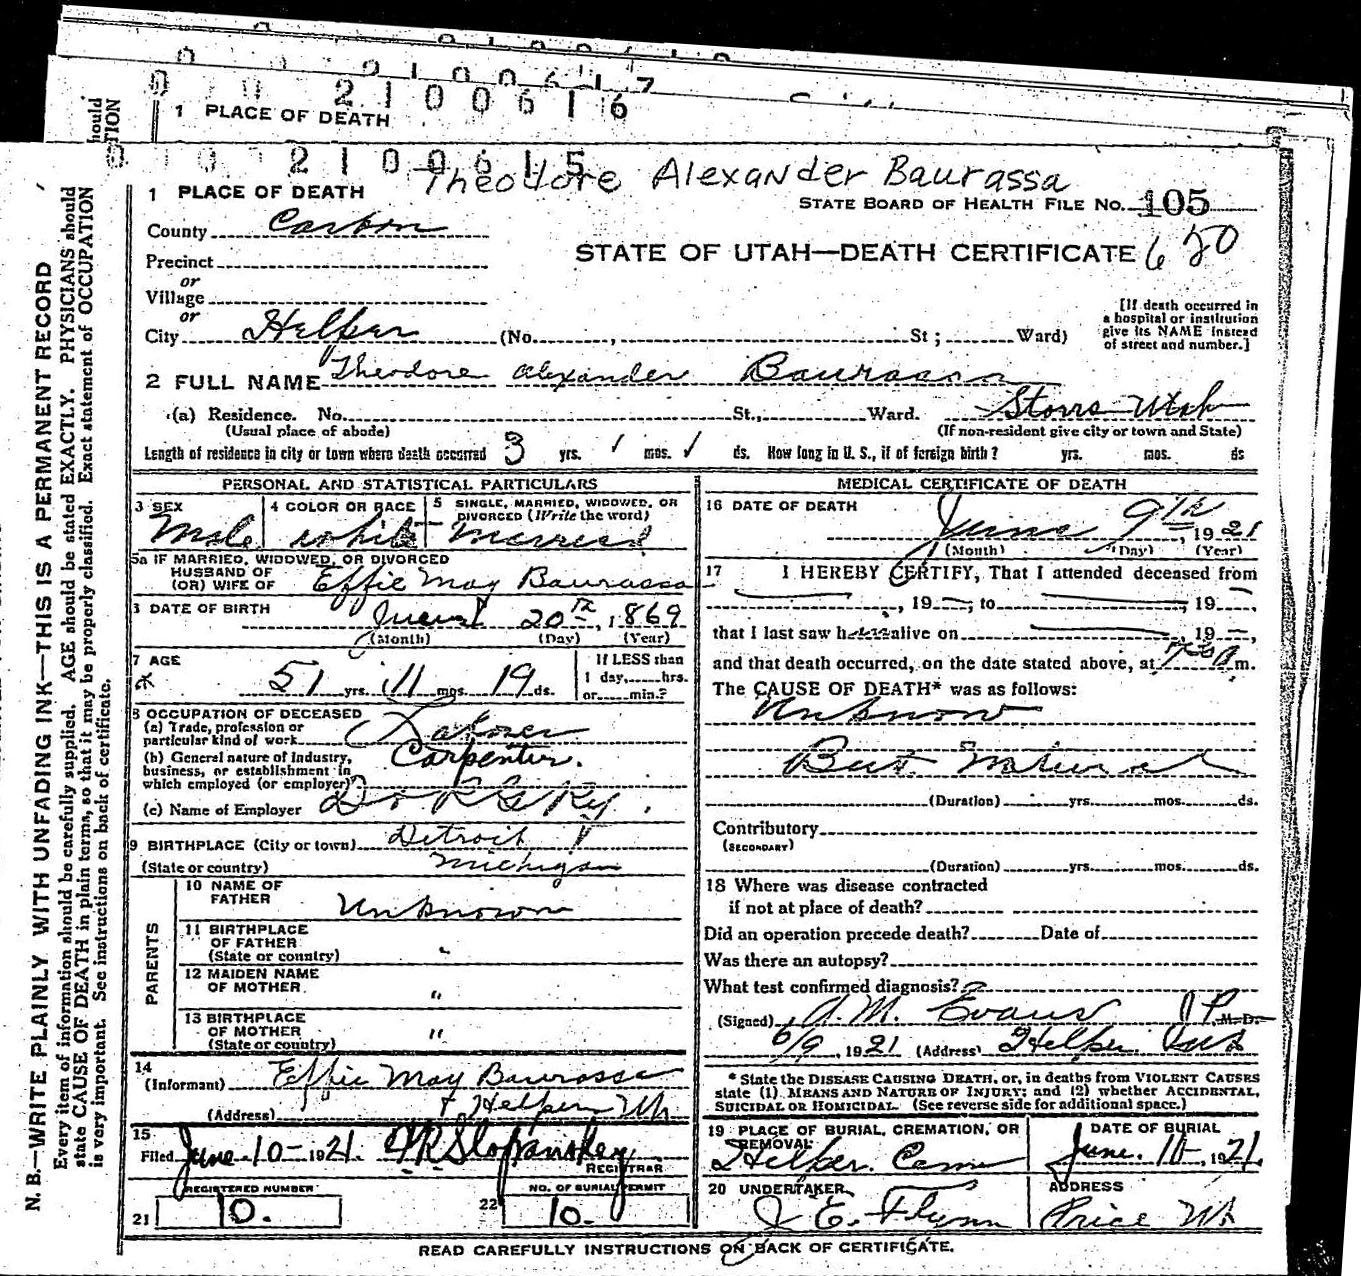 0 0 2 1 0 0 6 1 7
0 0 2 1 0 0 6 1 6
1 PLACE OF DEATH
0 0 0 2 1 0 0 6 1 5
Theodore Alexander Baurassa
1 PLACE OF DEATH
STATE BOARD OF HEALTH FILE No. 105
County Carbon
STATE OF UTAH—DEATH CERTIFICATE 680
Precinct
or
Village
or
[If death occurred in a hospital or institution give its NAME instead of street and number.]
City Helper (No. , St ; Ward)
2 FULL NAME Theodore Alexander Baurassa
(a) Residence. No. St., Ward. Storrs Utah
(Usual place of abode) (If non-resident give city or town and State)
Length of residence in city or town where death occurred 3 yrs. 1 mos. 1 ds. How long in U. S., if of foreign birth? yrs. mos. ds
PERSONAL AND STATISTICAL PARTICULARS
3 SEX
Male
4 COLOR OR RACE
white
5 SINGLE, MARRIED, WIDOWED, OR
DIVORCED (Write the word)
Married
5a IF MARRIED, WIDOWED, OR DIVORCED
HUSBAND OF
(OR) WIFE OF Effie May Baurassa
DATE OF BIRTH 20th, 1869
(Month) (Day) (Year)
7 AGE
51 yrs. 11 mos. 19 ds.
If LESS than
1 day, hrs.
or min.?
8 OCCUPATION OF DECEASED
(a) Trade, profession or
particular kind of work Laborer
(b) General nature of Industry,
business, or establishment in
which employed (or employer) Carpenter.
(c) Name of Employer D & R G Ry.
9 BIRTHPLACE (City or town) Detroit
(State or country) Michigan
PARENTS
10 NAME OF
FATHER Unknown
11 BIRTHPLACE
OF FATHER
(State or country) "
12 MAIDEN NAME
OF MOTHER "
13 BIRTHPLACE
OF MOTHER
(State or country) "
14
(Informant) Effie May Baurassa
(Address) Helper Ut
15
Filed June 10 – 1921.
REGISTRAR
REGISTERED NUMBER
21 10.
NO. OF BURIAL PERMIT
22 10.
MEDICAL CERTIFICATE OF DEATH
16 DATE OF DEATH
June 9th, 1921
(Month) (Day) (Year)
17 I HEREBY CERTIFY, That I attended deceased from
, 19 —; to , 19 —,
that I last saw h alive on , 19 —,
and that death occurred, on the date stated above, at m.
The CAUSE OF DEATH* was as follows:
Unknow
But Natural
(Duration) yrs. mos. ds.
Contributory
(SECONDARY)
(Duration) yrs. mos. ds.
18 Where was disease contracted
if not at place of death?
Did an operation precede death? Date of
Was there an autopsy?
What test confirmed diagnosis?
(Signed) A. M. Evans J P, M. D.
6/9, 1921 (Address) Helper Utah
* State the DISEASE CAUSING DEATH, or, in deaths from VIOLENT CAUSES
state (1) MEANS AND NATURE OF INJURY; and (2) whether ACCIDENTAL,
SUICIDAL OR HOMICIDAL. (See reverse side for additional space.)
19 PLACE OF BURIAL, CREMATION, OR
REMOVAL
Helper. Cem
DATE OF BURIAL
June. 10–, 1921.
20 UNDERTAKER
J E. Flynn
ADDRESS
Price Ut
READ CAREFULLY INSTRUCTIONS ON BACK OF CERTIFICATE.
N. B.—WRITE PLAINLY WITH UNFADING INK—THIS IS A PERMANENT RECORD
Every item of information should be carefully supplied. AGE should be stated EXACTLY. PHYSICIANS should
state CAUSE OF DEATH in plain terms, so that it may be properly classified. Exact statement of OCCUPATION
is very important. See instructions on back of certificate.